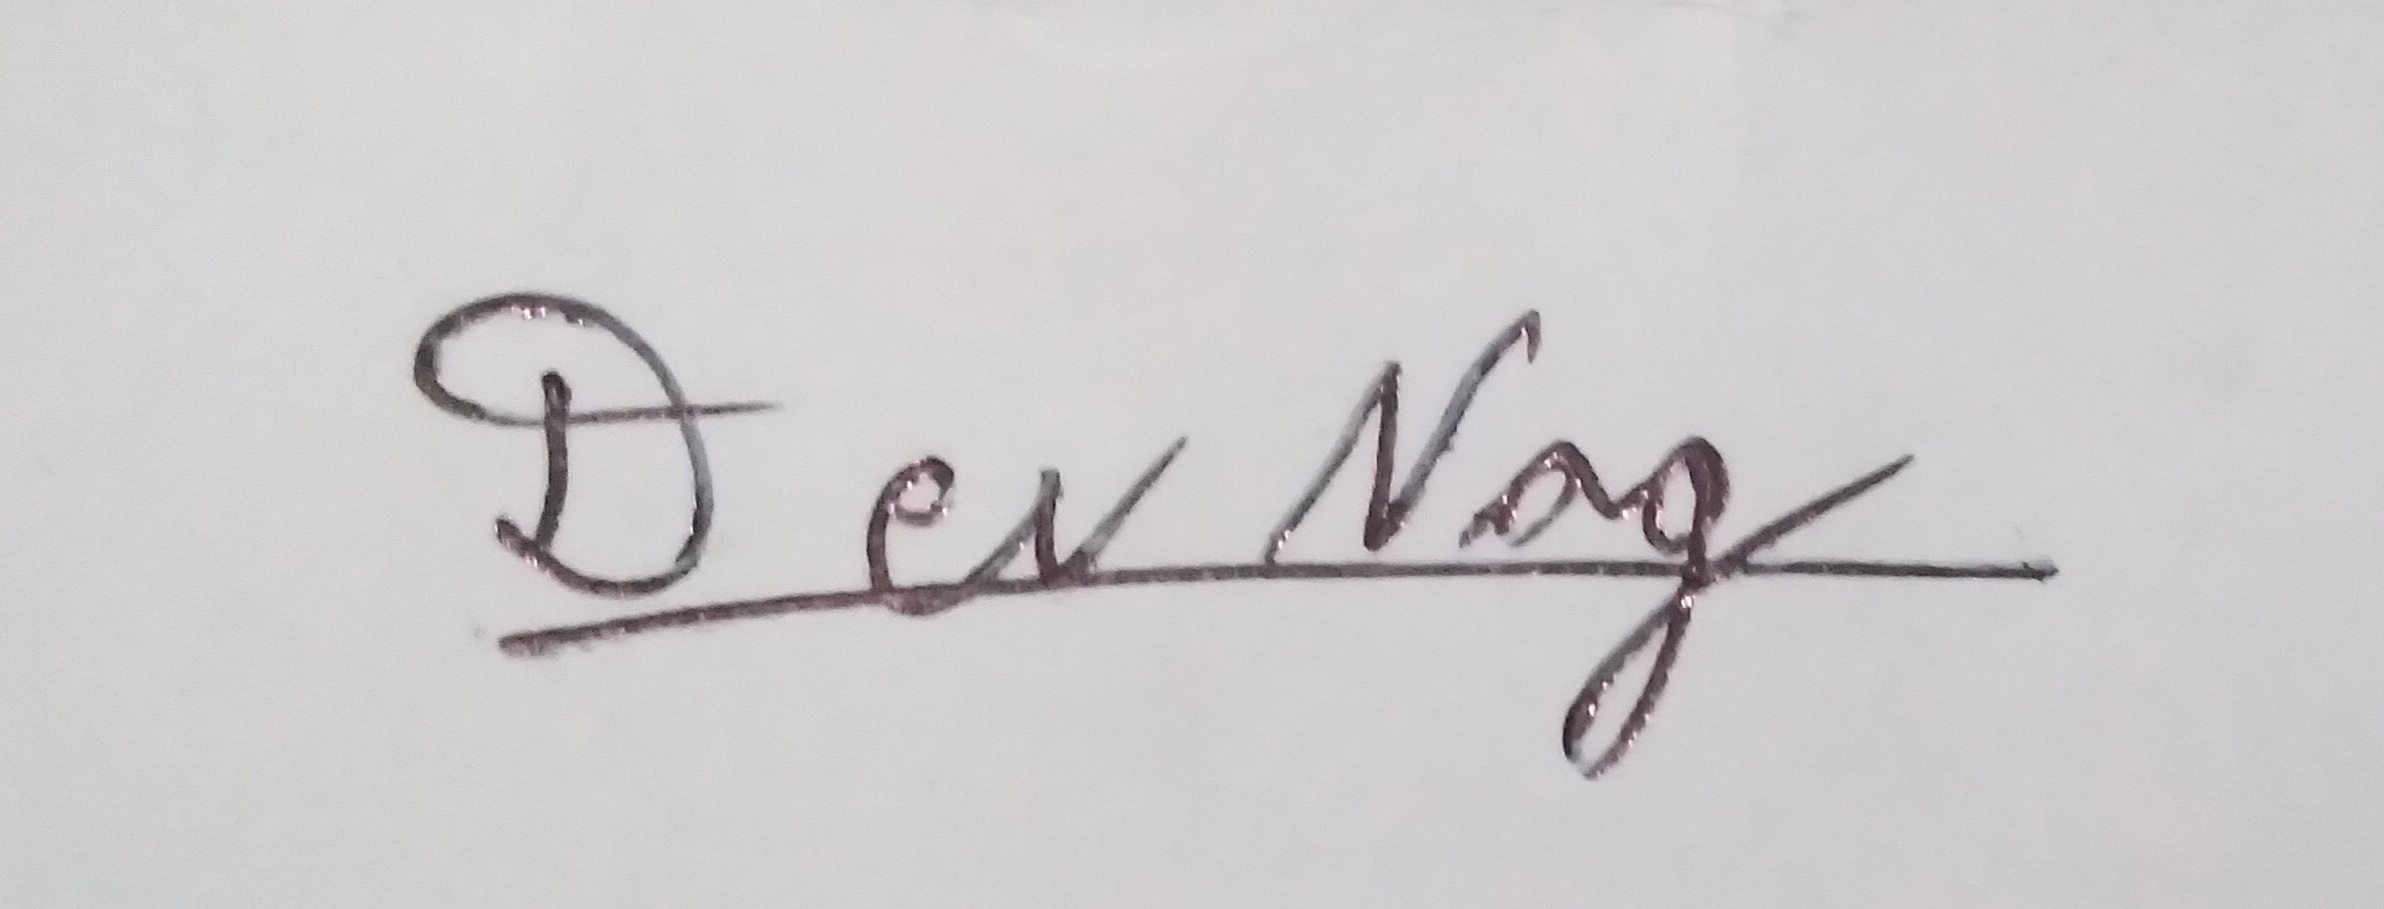 Dev Nag